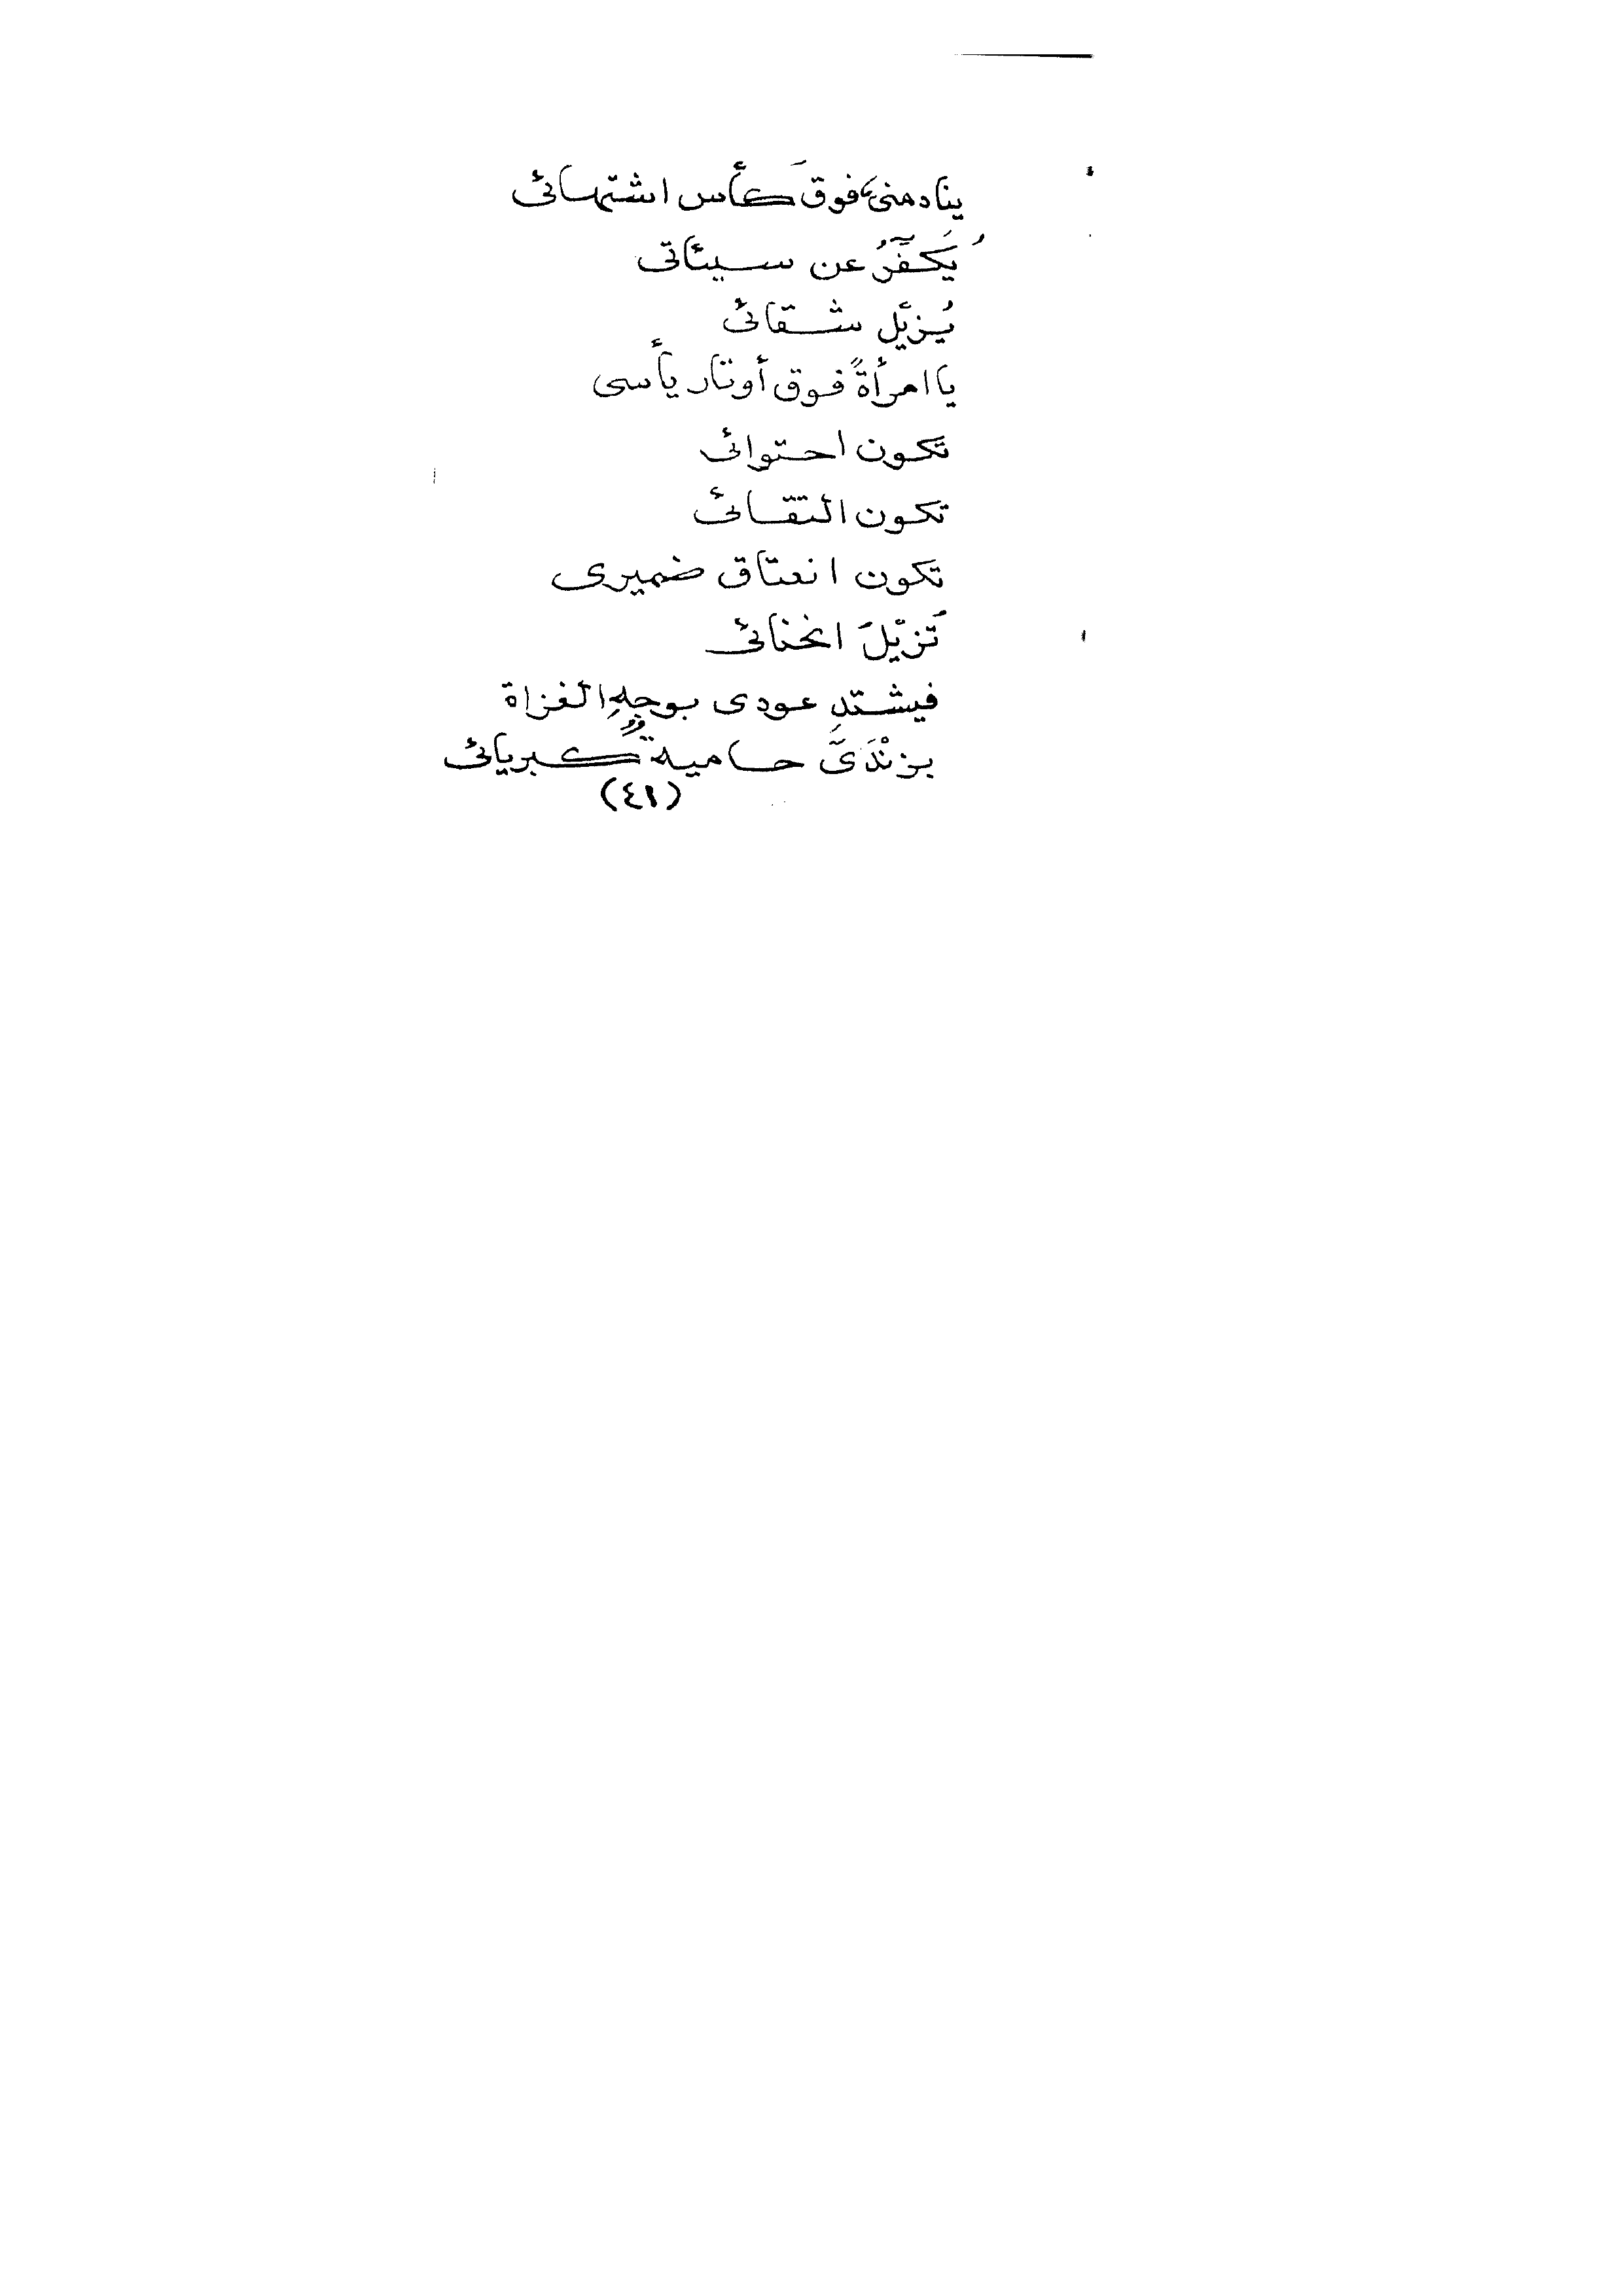 ينادمنى، فوقَ كأس اشتهائى
يُكَفِّرُ عن سيئاتى
يُزيّل شقائى
يا امرأةً فوق أوتار يأسى
تكون احتوائى
تكون التقائى
تكون انعتاق ضميرى
تَزيّلَ انحنائى
فيشتدِ عودى بوجهِ الغزاة
بزنْدَىَّ حاميةٌ كبريائى
(٤١)